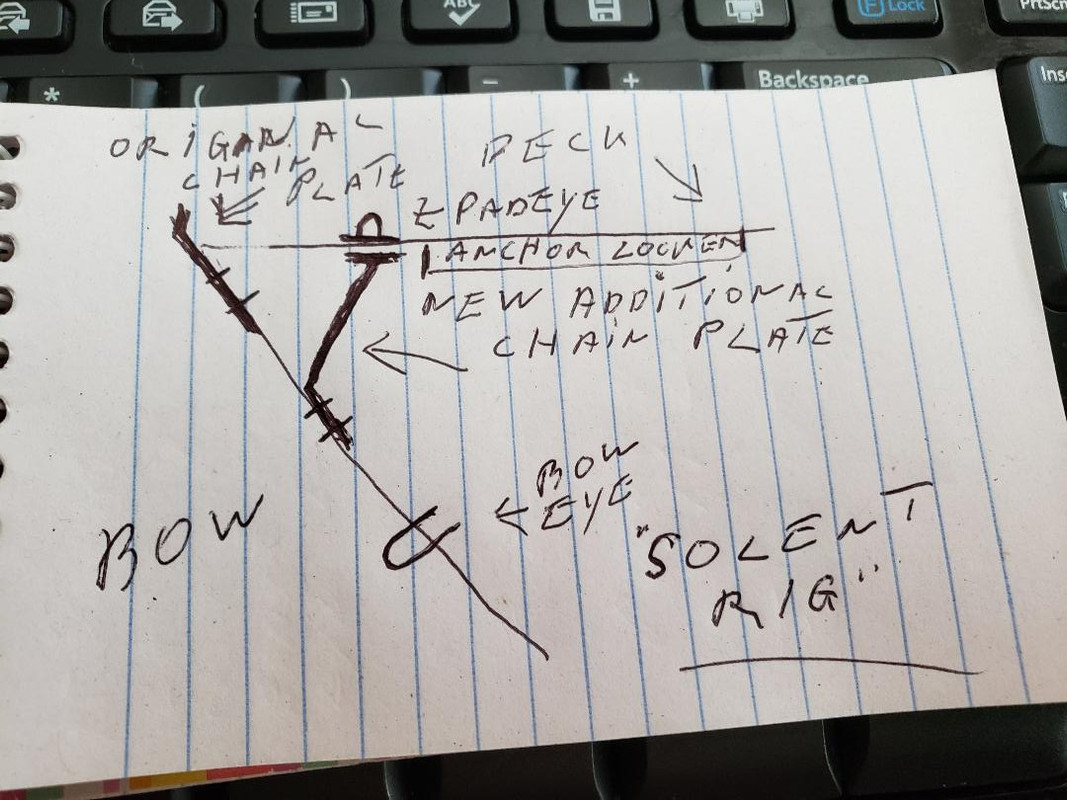 ABC
[F] Lock
PrtScn
*
(
)
-
+
Backspace
Ins
ORIGANAL
CHAIN
PLATE
DECK
PADEYE
ANCHOR LOCKER
NEW ADDITIONAL
CHAIN PLATE
BOW
EYE
BOW
"SOLENT
RIG"